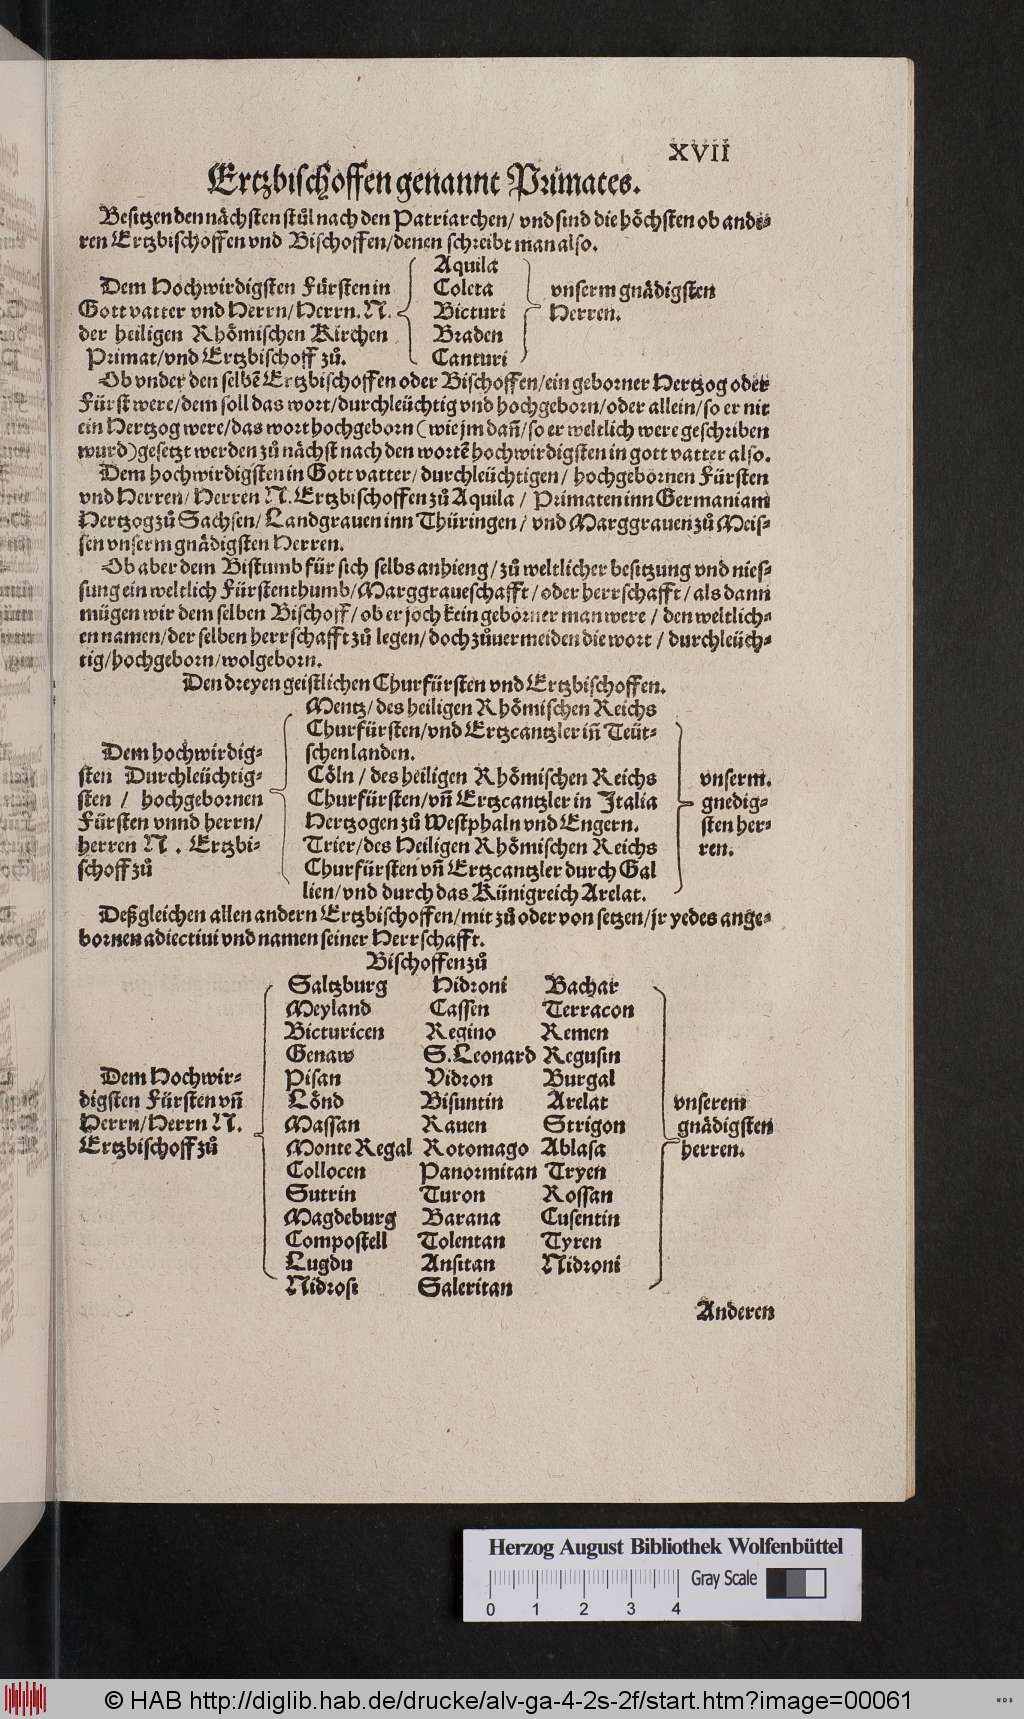 XVII
Ertzbischoffen genannt Primates.
Besitzen den nächsten stůl nach den Patriarchen/ vnd sind die höchsten ob ande-
ren Ertzbischoffen vnd Bischoffen/denen schreibt man also.
Dem Hochwirdigsten Fürsten in
Gott vatter vnd Herrn/Herrn. N.
der heiligen Rhömischen Kirchen
Primat/vnd Ertzbischoff zů.
Aquila
Coleta
Bicturi
Braden
Canturi
vnserm gnädigsten
Herren.
Ob vnder den selbē Ertzbischoffen oder Bischoffen/ein geborner Hertzog oder
Fürst were/dem soll das wort/durchleüchtig vnd hochgeborn/oder allein/so er nit
ein Hertzog were/das wort hochgeborn (wie jm dañ/so er weltlich were geschriben
wurd)gesetzt werden zů nächst nach den wortē hochwirdigsten in gott vatter also.
Dem hochwirdigsten in Gott vatter/durchleüchtigen/ hochgebornen Fürsten
vnd Herren/ Herren N. Ertzbischoffen zů Aquila / Primaten inn Germaniam
Hertzog zů Sachsen/ Landgrauen inn Thüringen / vnd Marggrauen zů Meis-
sen vnserm gnädigsten Herren.
Ob aber dem Bistumb für sich selbs anhieng/zů weltlicher besitzung vnd nies-
sung ein weltlich Fürstenthumb/Marggraueschafft/oder herrschafft/als dann
mügen wir dem selben Bischoff/ob er joch kein geborner man were / den weltlich-
en namen/der selben herrschafft zů legen/doch zůuermeiden die wort / durchleüch-
tig/hochgeborn/wolgeborn.
Den dreyen geistlichen Churfürsten vnd Ertzbischoffen.
Dem hochwirdig-
sten Durchleüchtig-
sten / hochgebornen
Fürsten vnnd herrn/
herren N . Ertzbi-
schoff zů
Mentz/des heiligen Rhömischen Reichs
Churfürsten/vnd Ertzcantzler iñ Teüt-
schen landen.
Cöln / des heiligen Rhömischen Reichs
Churfürsten/vñ Ertzcantzler in Italia
Hertzogen zů Westphaln vnd Engern.
Trier/des Heiligen Rhömischen Reichs
Churfürsten vñ Ertzcantzler durch Gal
lien/vnd durch das Künigreich Arelat.
vnserm.
gnedig-
sten her-
ren.
Deßgleichen allen andern Ertzbischoffen/mit zů oder von setzen/jr yedes ange-
bornen adiectiui vnd namen seiner Herrschafft.
Bischoffen zů
Dem Hochwir-
digsten Fürsten vñ
Herrn/Herrn N.
Ertzbischoff zů
Saltzburg Hidroni Bachar
Meyland Cassen Terracon
Bicturicen Regino Remen
Genaw S.Leonard Regusin
Pisan Vidron Burgal
Lönd Bisuntin Arelat
Massan Rauen Strigon
Monte Regal Rotomago Ablasa
Collocen Panormitan Tryen
Sutrin Turon Rossan
Magdeburg Barana Cusentin
Compostell Tolentan Tyren
Lugdu Ansitan Nidroni
Nidrosi Saleritan
vnserem
gnädigsten
herren.
Anderen
Herzog August Bibliothek Wolfenbüttel
Gray Scale
0 1 2 3 4
© HAB http://diglib.hab.de/drucke/alv-ga-4-2s-2f/start.htm?image=00061